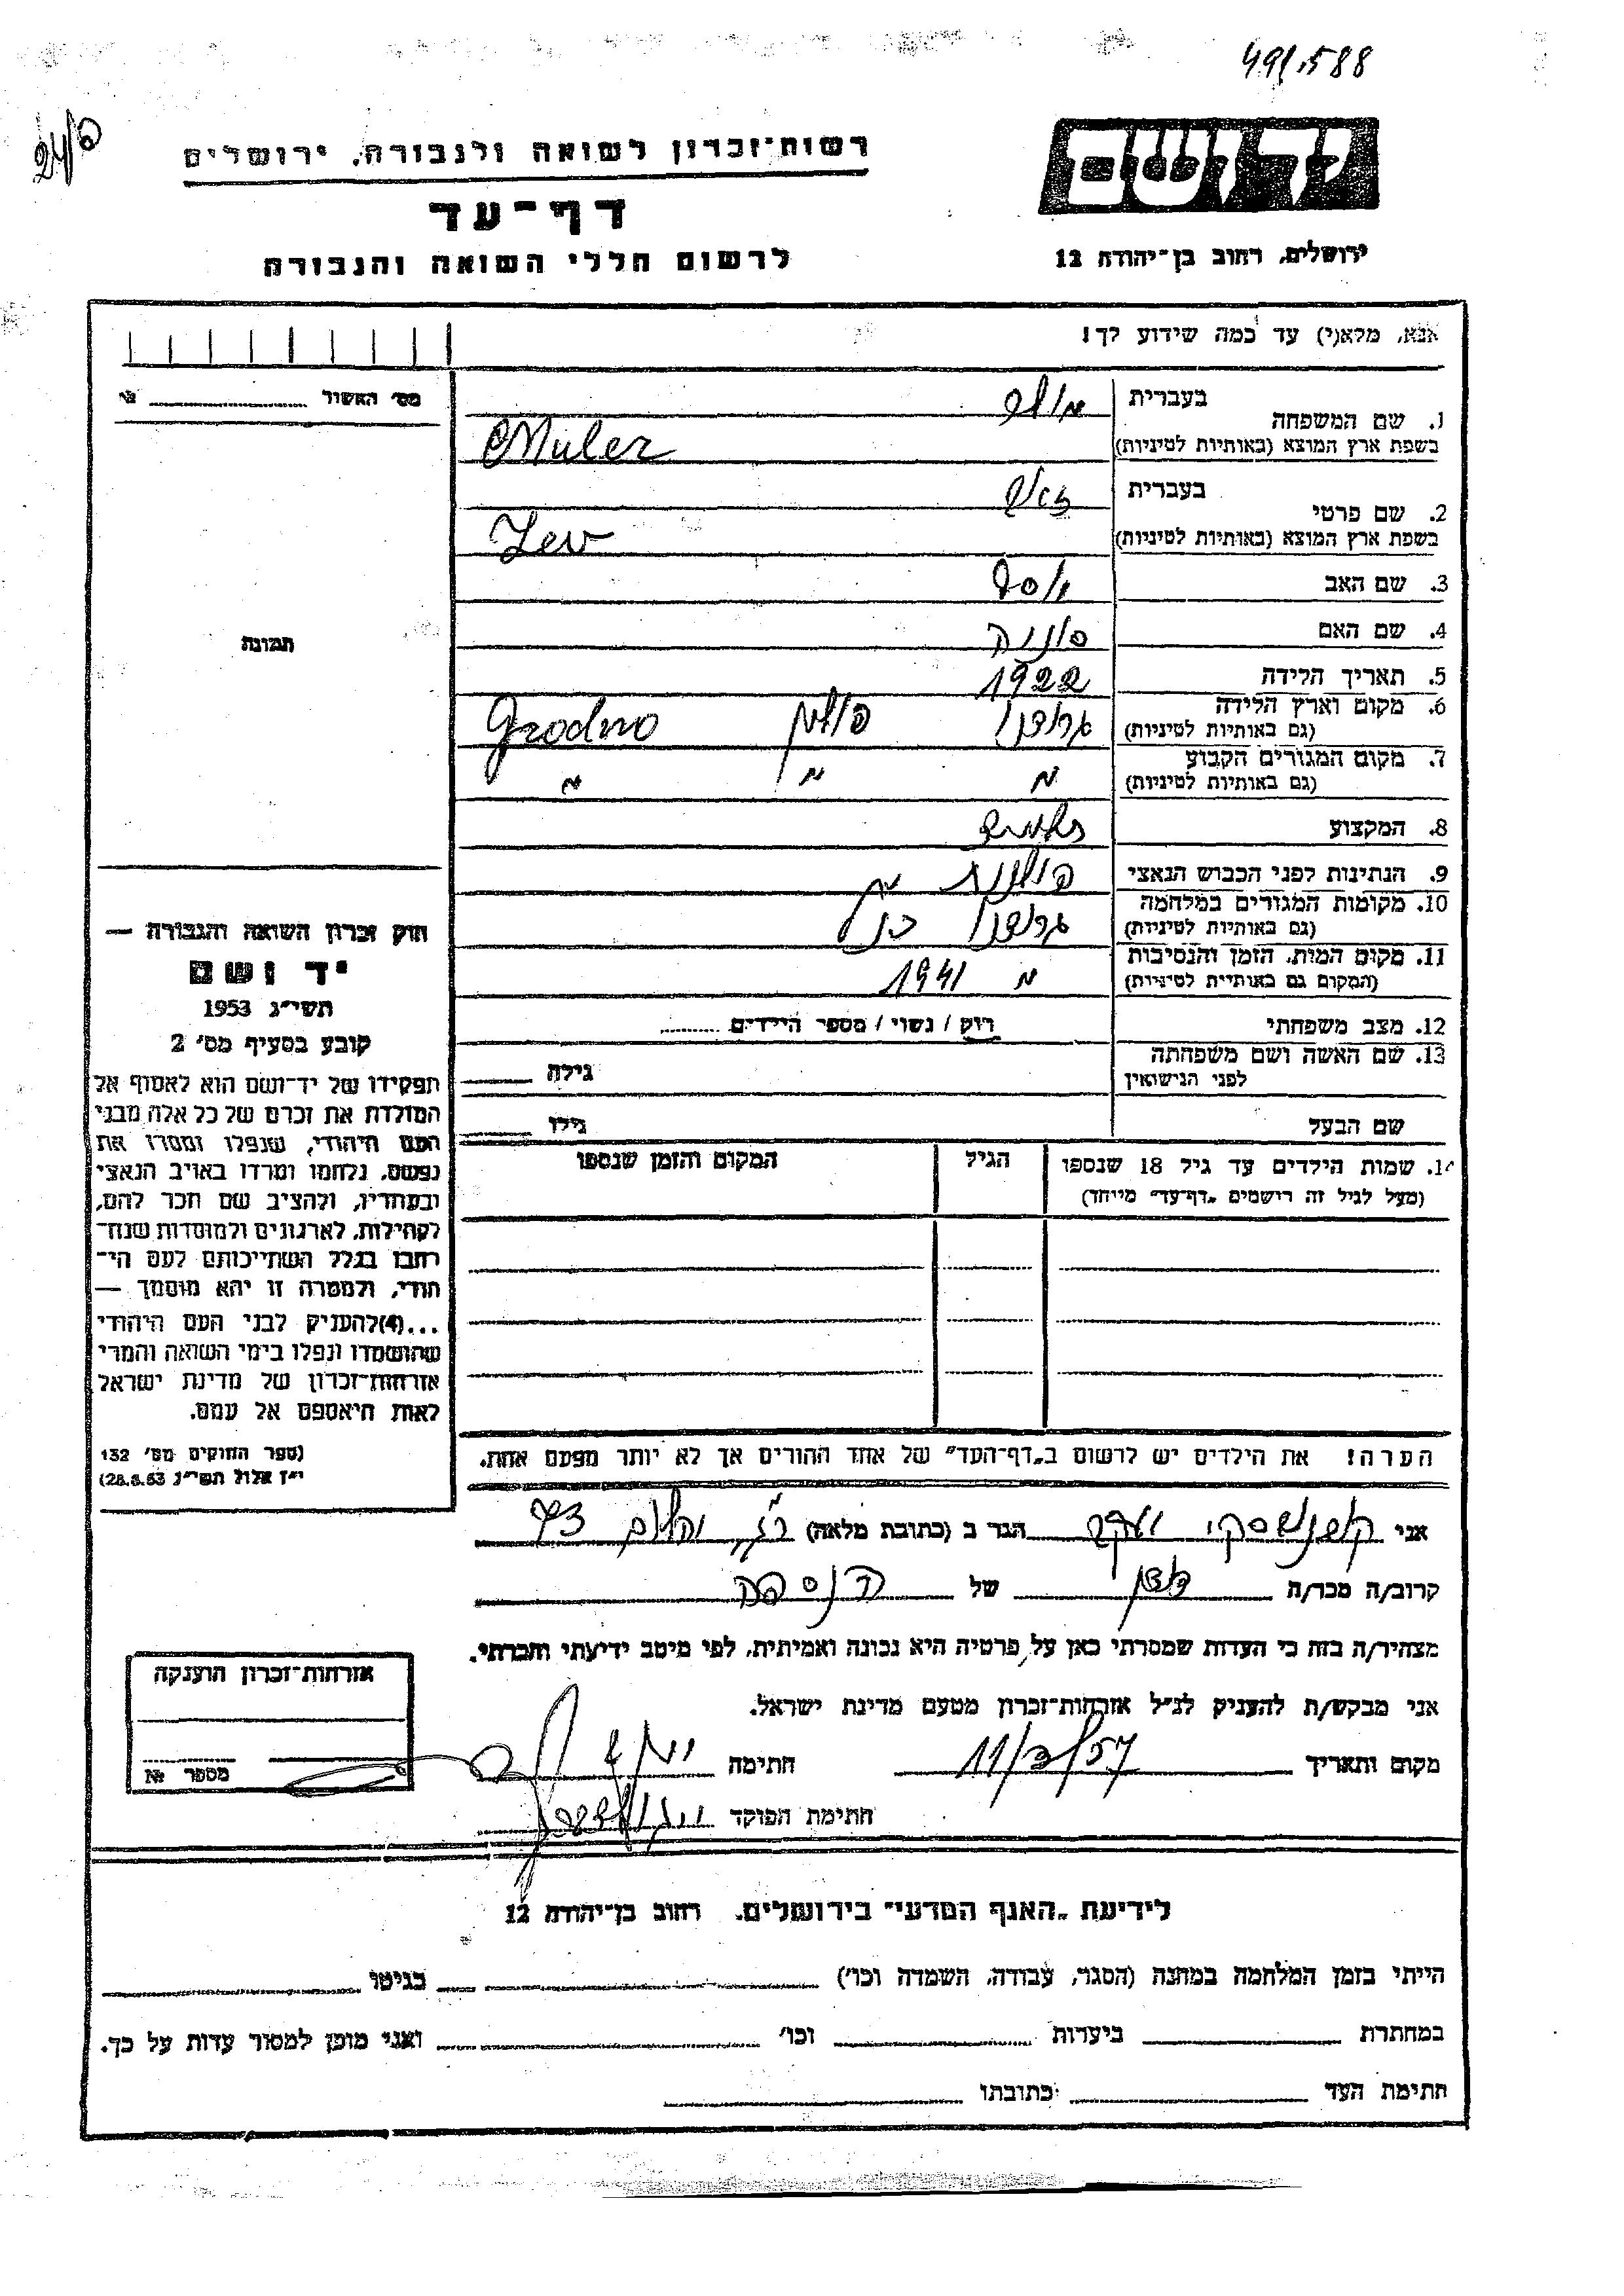 49/588
רשות־זכרון לשואה ולגבורה, ירושלים
יד ושם
דף־עד
לרשום חללי השואה והגבורה
ירושלים, רחוב בן־יהודה 12
אנא, מלא(י) עד כמה שידוע לך!
מס׳ האשור
1. שם המשפחה
בעברית מולר
בשפת ארץ המוצא (באותיות לטיניות) Muler
2. שם פרטי
בעברית זאב
בשפת ארץ המוצא (באותיות לטיניות) Zev
3. שם האב יוסף
4. שם האם סוניה
תמונה
5. תאריך הלידה 1922
6. מקום וארץ הלידה גרודנו פולין Grodno
(גם באותיות לטיניות)
7. מקום המגורים הקבוע
(גם באותיות לטיניות) " " "
8. המקצוע
9. הנתינות לפני הכבוש הנאצי פולנית
10. מקומות המגורים במלחמה גרודנו
(גם באותיות לטיניות)
11. מקום המות, הזמן והנסיבות " 1941
(המקום גם באותיות לטיניות)
12. מצב משפחתי רוק / נשוי / מספר הילדים
13. שם האשה ושם משפחתה
לפני הנישואין גילה
שם הבעל גילו
14. שמות הילדים עד גיל 18 שנספו הגיל המקום והזמן שנספו
(מעל לגיל זה רישמים „דף־עד״ מיוחד)
חוק זכרון השואה והגבורה —
יד ושם
תשי״ג 1953
קובע בסעיף מס׳ 2
תפקידו של יד־ושם הוא לאסוף אל
המולדת את זכרם של כל אלה מבני
העם היהודי, שנפלו ומסרו את
נפשם, נלחמו ומרדו באויב הנאצי
ובעוזריו, ולהציב שם וזכר להם,
לקהילות, לארגונים ולמוסדות שנח־
רבו בגלל השתייכותם לעם הי־
הודי, ולמטרה זו יהא מוסמך —
...(4)להעניק לבני העם היהודי
שהושמדו ונפלו בימי השואה והמרי
אזרחות־זכרון של מדינת ישראל
לאות היאספם אל עמם.
(ספר החוקים מס׳ 132
י״ז אלול תשי״ג 28.8.53)
הערה! את הילדים יש לרשום ב„דף־העד״ של אחד ההורים אך לא יותר מפעם אחת.
אני יעקב הגר ב (כתובת מלאה)
קרוב/ה מכר/ה של
מצהיר/ה בזה כי העדות שמסרתי כאן על פרטיה היא נכונה ואמיתית, לפי מיטב ידיעתי והכרתי.
אני מבקש/ת להעניק לנ״ל אזרחות־זכרון מטעם מדינת ישראל.
מקום ותאריך 11/3/57 חתימה
חתימת הפוקד
אזרחות־זכרון הוענקה
מספר №
לידיעת „האגף המדעי״ בירושלים, רחוב בן־יהודה 12
הייתי בזמן המלחמה במחנה (הסגר, עבודה, השמדה וכו׳) בגיטו
במחתרת ביערות וכו׳ ואני מוכן למסור עדות על כך.
חתימת העד כתובתו